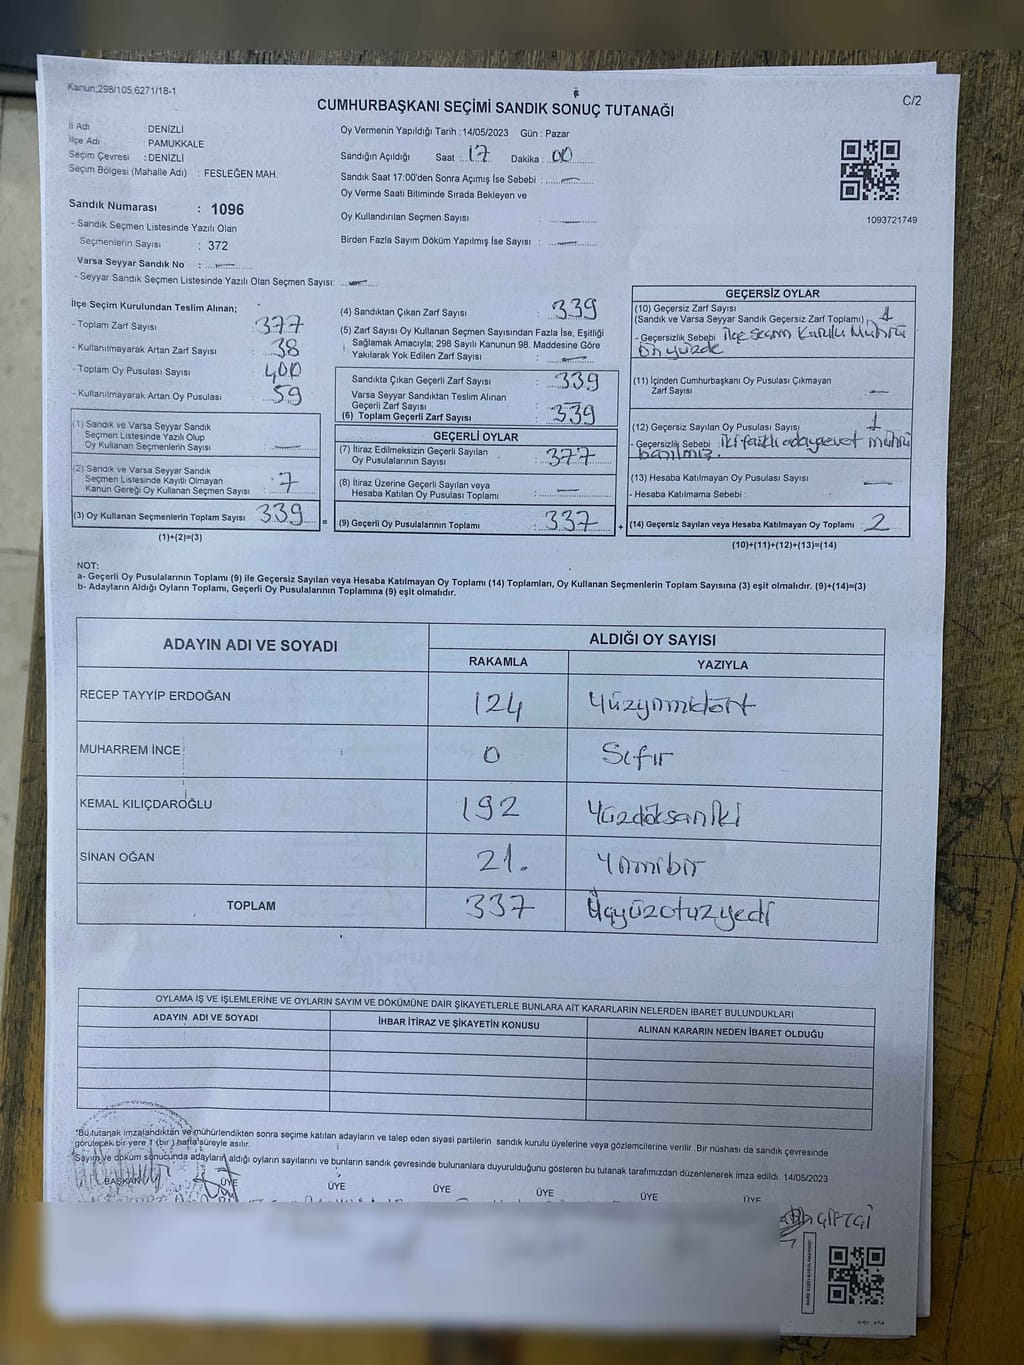 Kanun;298/105,6271/18-1
C/2
CUMHURBAŞKANI SEÇİMİ SANDIK SONUÇ TUTANAĞI
İl Adı : DENİZLİ
İlçe Adı : PAMUKKALE
Seçim Çevresi : DENİZLİ
Seçim Bölgesi (Mahalle Adı) : FESLEĞEN MAH.
Sandık Numarası : 1096
- Sandık Seçmen Listesinde Yazılı Olan
Seçmenlerin Sayısı : 372
Varsa Seyyar Sandık No : —
- Seyyar Sandık Seçmen Listesinde Yazılı Olan Seçmen Sayısı: —
Oy Vermenin Yapıldığı Tarih : 14/05/2023 Gün : Pazar
Sandığın Açıldığı Saat : 17 Dakika : 00
Sandık Saat 17:00'den Sonra Açımış İse Sebebi : —
Oy Verme Saati Bitiminde Sırada Bekleyen ve
Oy Kullandırılan Seçmen Sayısı : —
Birden Fazla Sayım Döküm Yapılmış İse Sayısı : —
1093721749
İlçe Seçim Kurulundan Teslim Alınan;
- Toplam Zarf Sayısı : 377
- Kullanılmayarak Artan Zarf Sayısı : 38
- Toplam Oy Pusulası Sayısı : 400
- Kullanılmayarak Artan Oy Pusulası : 59
(1) Sandık ve Varsa Seyyar Sandık
Seçmen Listesinde Yazılı Olup
Oy Kullanan Seçmenlerin Sayısı : —
(2) Sandık ve Varsa Seyyar Sandık
Seçmen Listesinde Kayıtlı Olmayan
Kanun Gereği Oy Kullanan Seçmen Sayısı : 7
(3) Oy Kullanan Seçmenlerin Toplam Sayısı : 339
(1)+(2)=(3)
(4) Sandıktan Çıkan Zarf Sayısı : 339
(5) Zarf Sayısı Oy Kullanan Seçmen Sayısından Fazla İse, Eşitliği
Sağlamak Amacıyla; 298 Sayılı Kanunun 98. Maddesine Göre
Yakılarak Yok Edilen Zarf Sayısı : —
Sandıkta Çıkan Geçerli Zarf Sayısı : 339
Varsa Seyyar Sandıktan Teslim Alınan
Geçerli Zarf Sayısı : —
(6) Toplam Geçerli Zarf Sayısı : 339
GEÇERLİ OYLAR
(7) İtiraz Edilmeksizin Geçerli Sayılan
Oy Pusulalarının Sayısı : 377
(8) İtiraz Üzerine Geçerli Sayılan veya
Hesaba Katılan Oy Pusulası Toplamı : —
= (9) Geçerli Oy Pusulalarının Toplamı : 337 +
GEÇERSİZ OYLAR
(10) Geçersiz Zarf Sayısı
(Sandık ve Varsa Seyyar Sandık Geçersiz Zarf Toplamı) : 1
- Geçersizlik Sebebi : ilçe seçim Kurulu Mührü
ön yüzde
(11) İçinden Cumhurbaşkanı Oy Pusulası Çıkmayan
Zarf Sayısı : —
(12) Geçersiz Sayılan Oy Pusulası Sayısı : 1
- Geçersizlik Sebebi : iki farklı adaya evet mührü
basılmış.
(13) Hesaba Katılmayan Oy Pusulası Sayısı : —
- Hesaba Katılmama Sebebi :
(14) Geçersiz Sayılan veya Hesaba Katılmayan Oy Toplamı : 2
(10)+(11)+(12)+(13)=(14)
NOT:
a- Geçerli Oy Pusulalarının Toplamı (9) ile Geçersiz Sayılan veya Hesaba Katılmayan Oy Toplamı (14) Toplamları, Oy Kullanan Seçmenlerin Toplam Sayısına (3) eşit olmalıdır. (9)+(14)=(3)
b- Adayların Aldığı Oyların Toplamı, Geçerli Oy Pusulalarının Toplamına (9) eşit olmalıdır.
ADAYIN ADI VE SOYADI ALDIĞI OY SAYISI
RAKAMLA YAZIYLA
RECEP TAYYİP ERDOĞAN 124 Yüzyirmidört
MUHARREM İNCE 0 Sıfır
KEMAL KILIÇDAROĞLU 192 Yüzdoksaniki
SİNAN OĞAN 21. Yirmibir
TOPLAM 337 Üçyüzotuzyedi
OYLAMA İŞ VE İŞLEMLERİNE VE OYLARIN SAYIM VE DÖKÜMÜNE DAİR ŞİKAYETLERLE BUNLARA AİT KARARLARIN NELERDEN İBARET BULUNDUKLARI
ADAYIN ADI VE SOYADI İHBAR İTİRAZ VE ŞİKAYETİN KONUSU ALINAN KARARIN NEDEN İBARET OLDUĞU
*Bu tutanak imzalandıktan ve mühürlendikten sonra seçime katılan adayların ve talep eden siyasi partilerin sandık kurulu üyelerine veya gözlemcilerine verilir. Bir nüshası da sandık çevresinde
görülecek bir yere 1 (bir) hafta süreyle asılır.
*Sayım ve döküm sonucunda adayların aldığı oyların sayılarını ve bunların sandık çevresinde bulunanlara duyurulduğunu gösteren bu tutanak tarafımızdan düzenlenerek imza edildi. 14/05/2023
BAŞKAN ÜYE ÜYE ÜYE ÜYE ÜYE ÜYE
ÇİFTÇİ